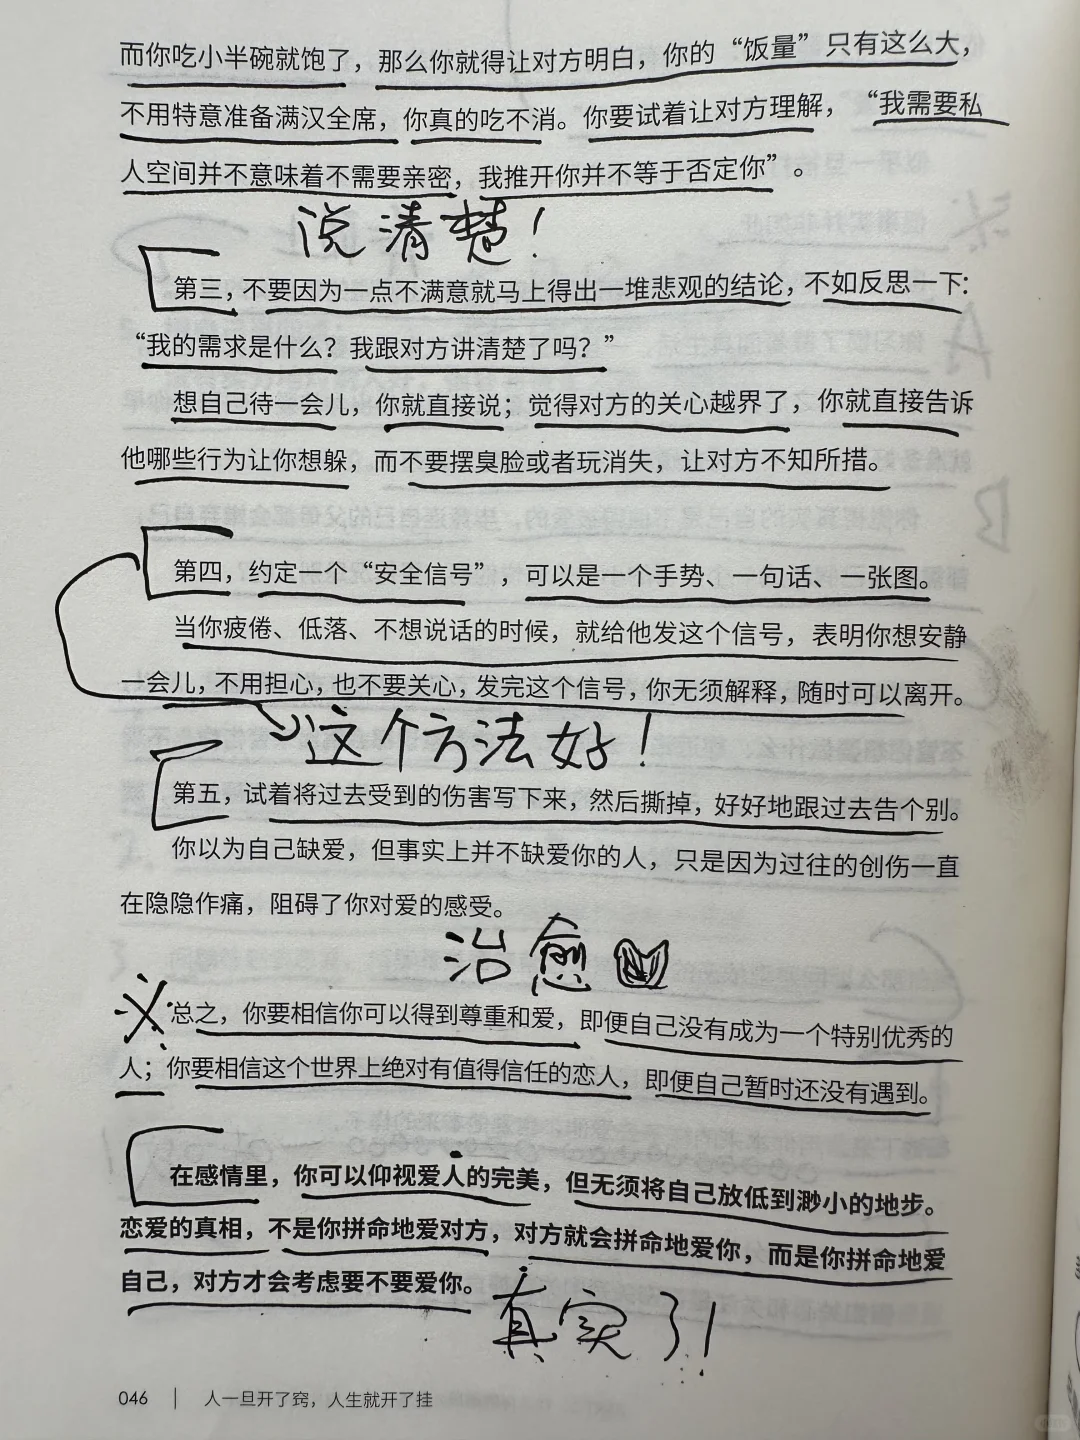 而你吃小半碗就饱了，那么你就得让对方明白，你的“饭量”只有这么大，
不用特意准备满汉全席，你真的吃不消。你要试着让对方理解，“我需要私
人空间并不意味着不需要亲密，我推开你并不等于否定你”。
说清楚！
第三，不要因为一点不满意就马上得出一堆悲观的结论，不如反思一下：
“我的需求是什么？我跟对方讲清楚了吗？”
想自己待一会儿，你就直接说；觉得对方的关心越界了，你就直接告诉
他哪些行为让你想躲，而不要摆臭脸或者玩消失，让对方不知所措。
第四，约定一个“安全信号”，可以是一个手势、一句话、一张图。
当你疲倦、低落、不想说话的时候，就给他发这个信号，表明你想安静
一会儿，不用担心，也不要关心，发完这个信号，你无须解释，随时可以离开。
这个方法好！
第五，试着将过去受到的伤害写下来，然后撕掉，好好地跟过去告个别。
你以为自己缺爱，但事实上并不缺爱你的人，只是因为过往的创伤一直
在隐隐作痛，阻碍了你对爱的感受。
治愈
总之，你要相信你可以得到尊重和爱，即便自己没有成为一个特别优秀的
人；你要相信这个世界上绝对有值得信任的恋人，即便自己暂时还没有遇到。
在感情里，你可以仰视爱人的完美，但无须将自己放低到渺小的地步。
恋爱的真相，不是你拼命地爱对方，对方就会拼命地爱你，而是你拼命地爱
自己，对方才会考虑要不要爱你。
真实了！
046 | 人一旦开了窍，人生就开了挂